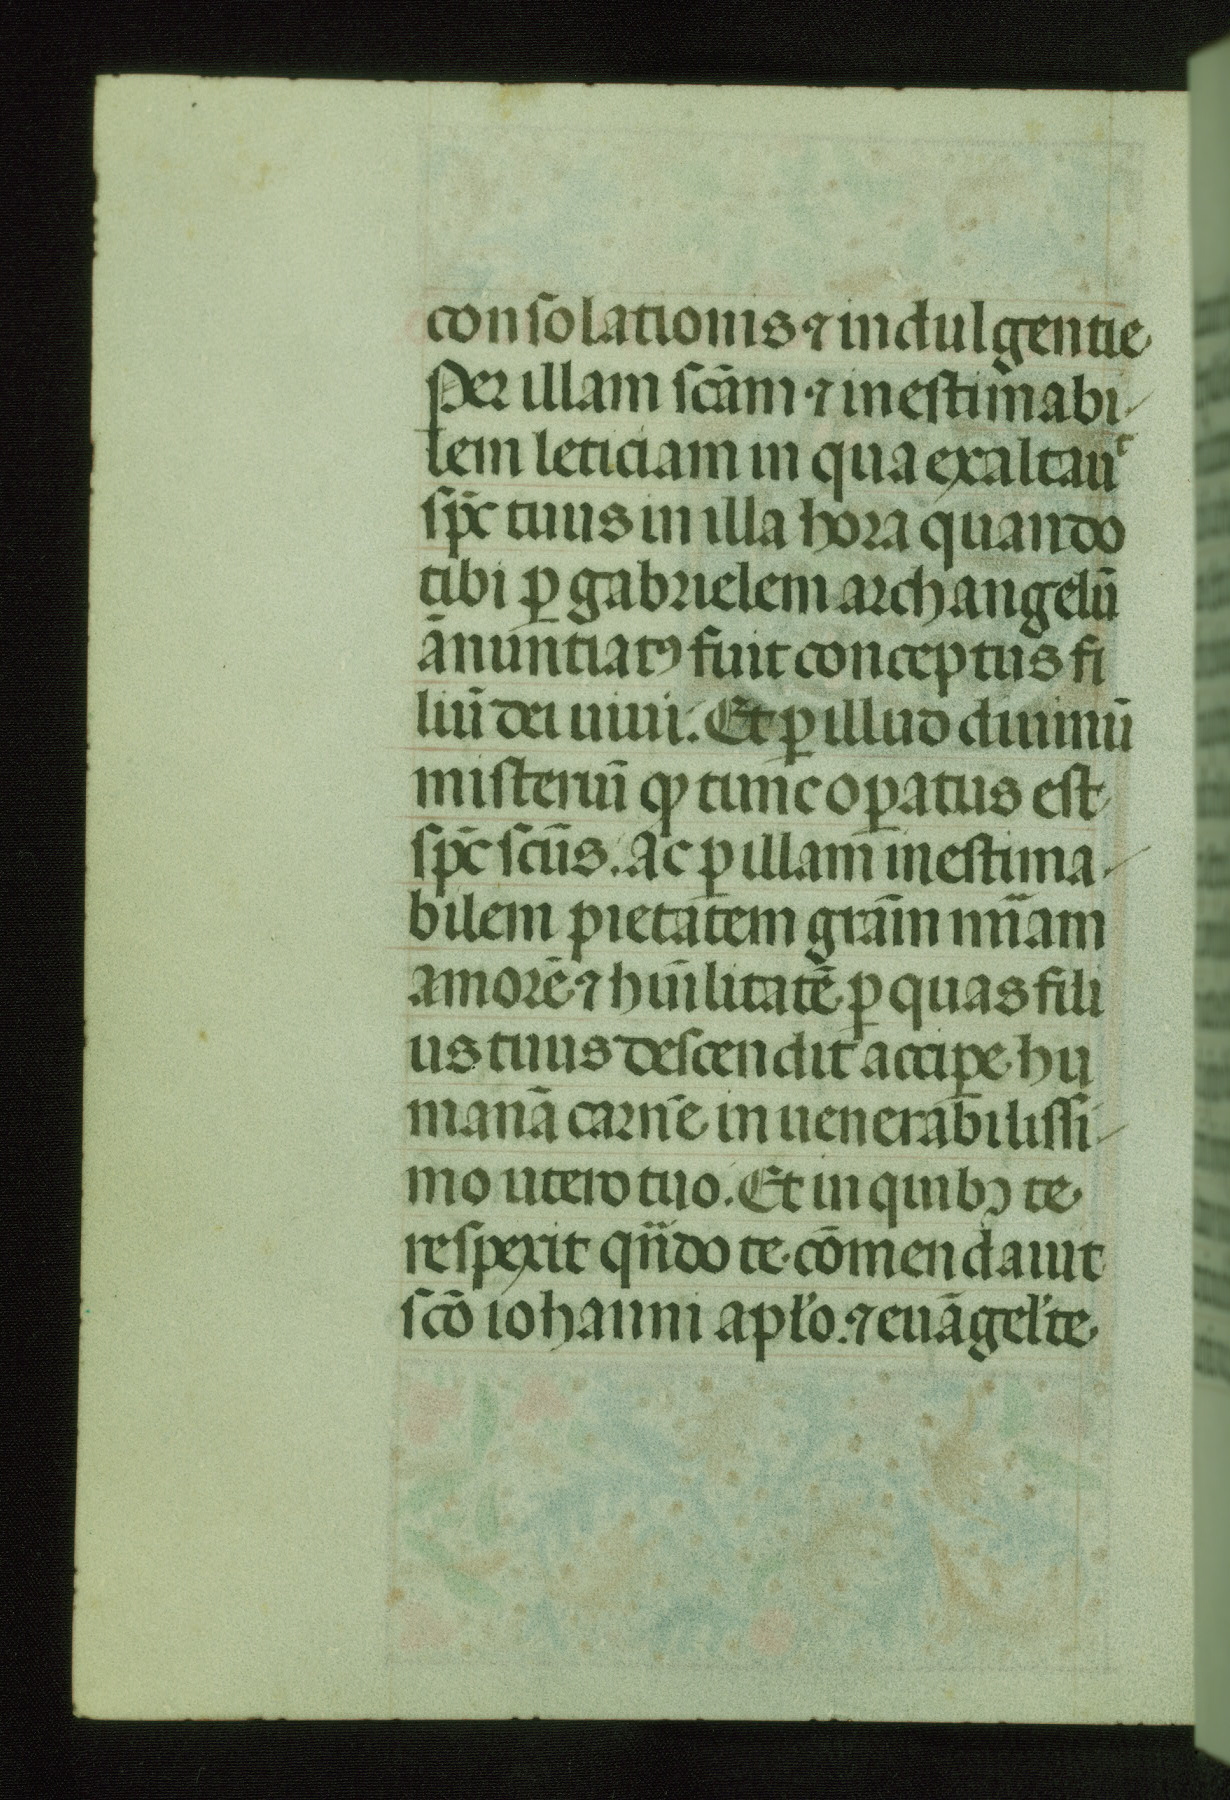 consolationis ⁊ indulgentie
Per illam scām ⁊ inestimabi
lem leticiam in qua exaltauᵗ
sp̄c tuus in illa hora quando
tibi ꝑ gabrielem archangelū
ānuntiatꝰ fuit conceptus fi
liū dei uiui. Et ꝑ illud diuinū
misteriū ꝙ tunc oꝑatus est
sp̄c scūs. Ac ꝑ illam inestima
bilem pietatem grām mīam
amorē ⁊ hūilitatē ꝑ quas fili
us tuus descendit acciꝑe hu
manā carnē in uenerabilissi
mo utero tuo. Et in quibꝫ te
respexit qn̄do te cōmendauit
scō iohanni apl̓o. ⁊ euāgel̓te